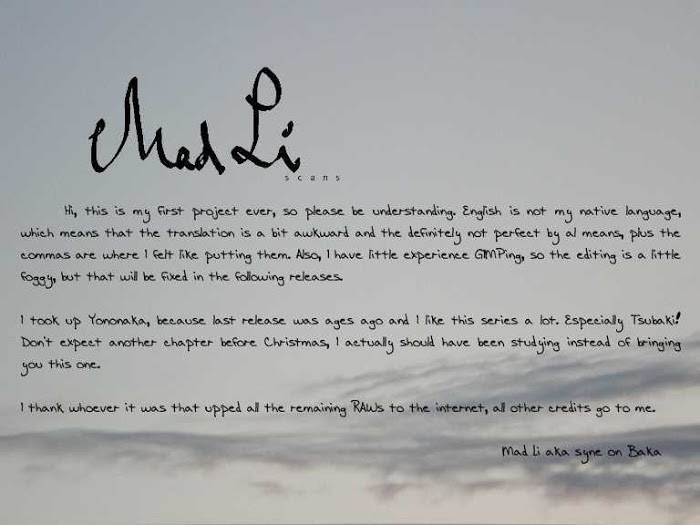 Mad Li
scans
Hi, this is my first project ever, so please be understanding. English is not my native language,
which means that the translation is a bit awkward and the definitely not perfect by al means, plus the
commas are where I felt like putting them. Also, I have little experience GIMPing, so the editing is a little
foggy, but that will be fixed in the following releases.
I took up Yononaka, because last release was ages ago and I like this series a lot. Especially Tsubaki!
Don't expect another chapter before Christmas, I actually should have been studying instead of bringing
you this one.
I thank whoever it was that upped all the remaining RAWs to the internet, all other credits go to me.
Mad Li aka syne on Baka